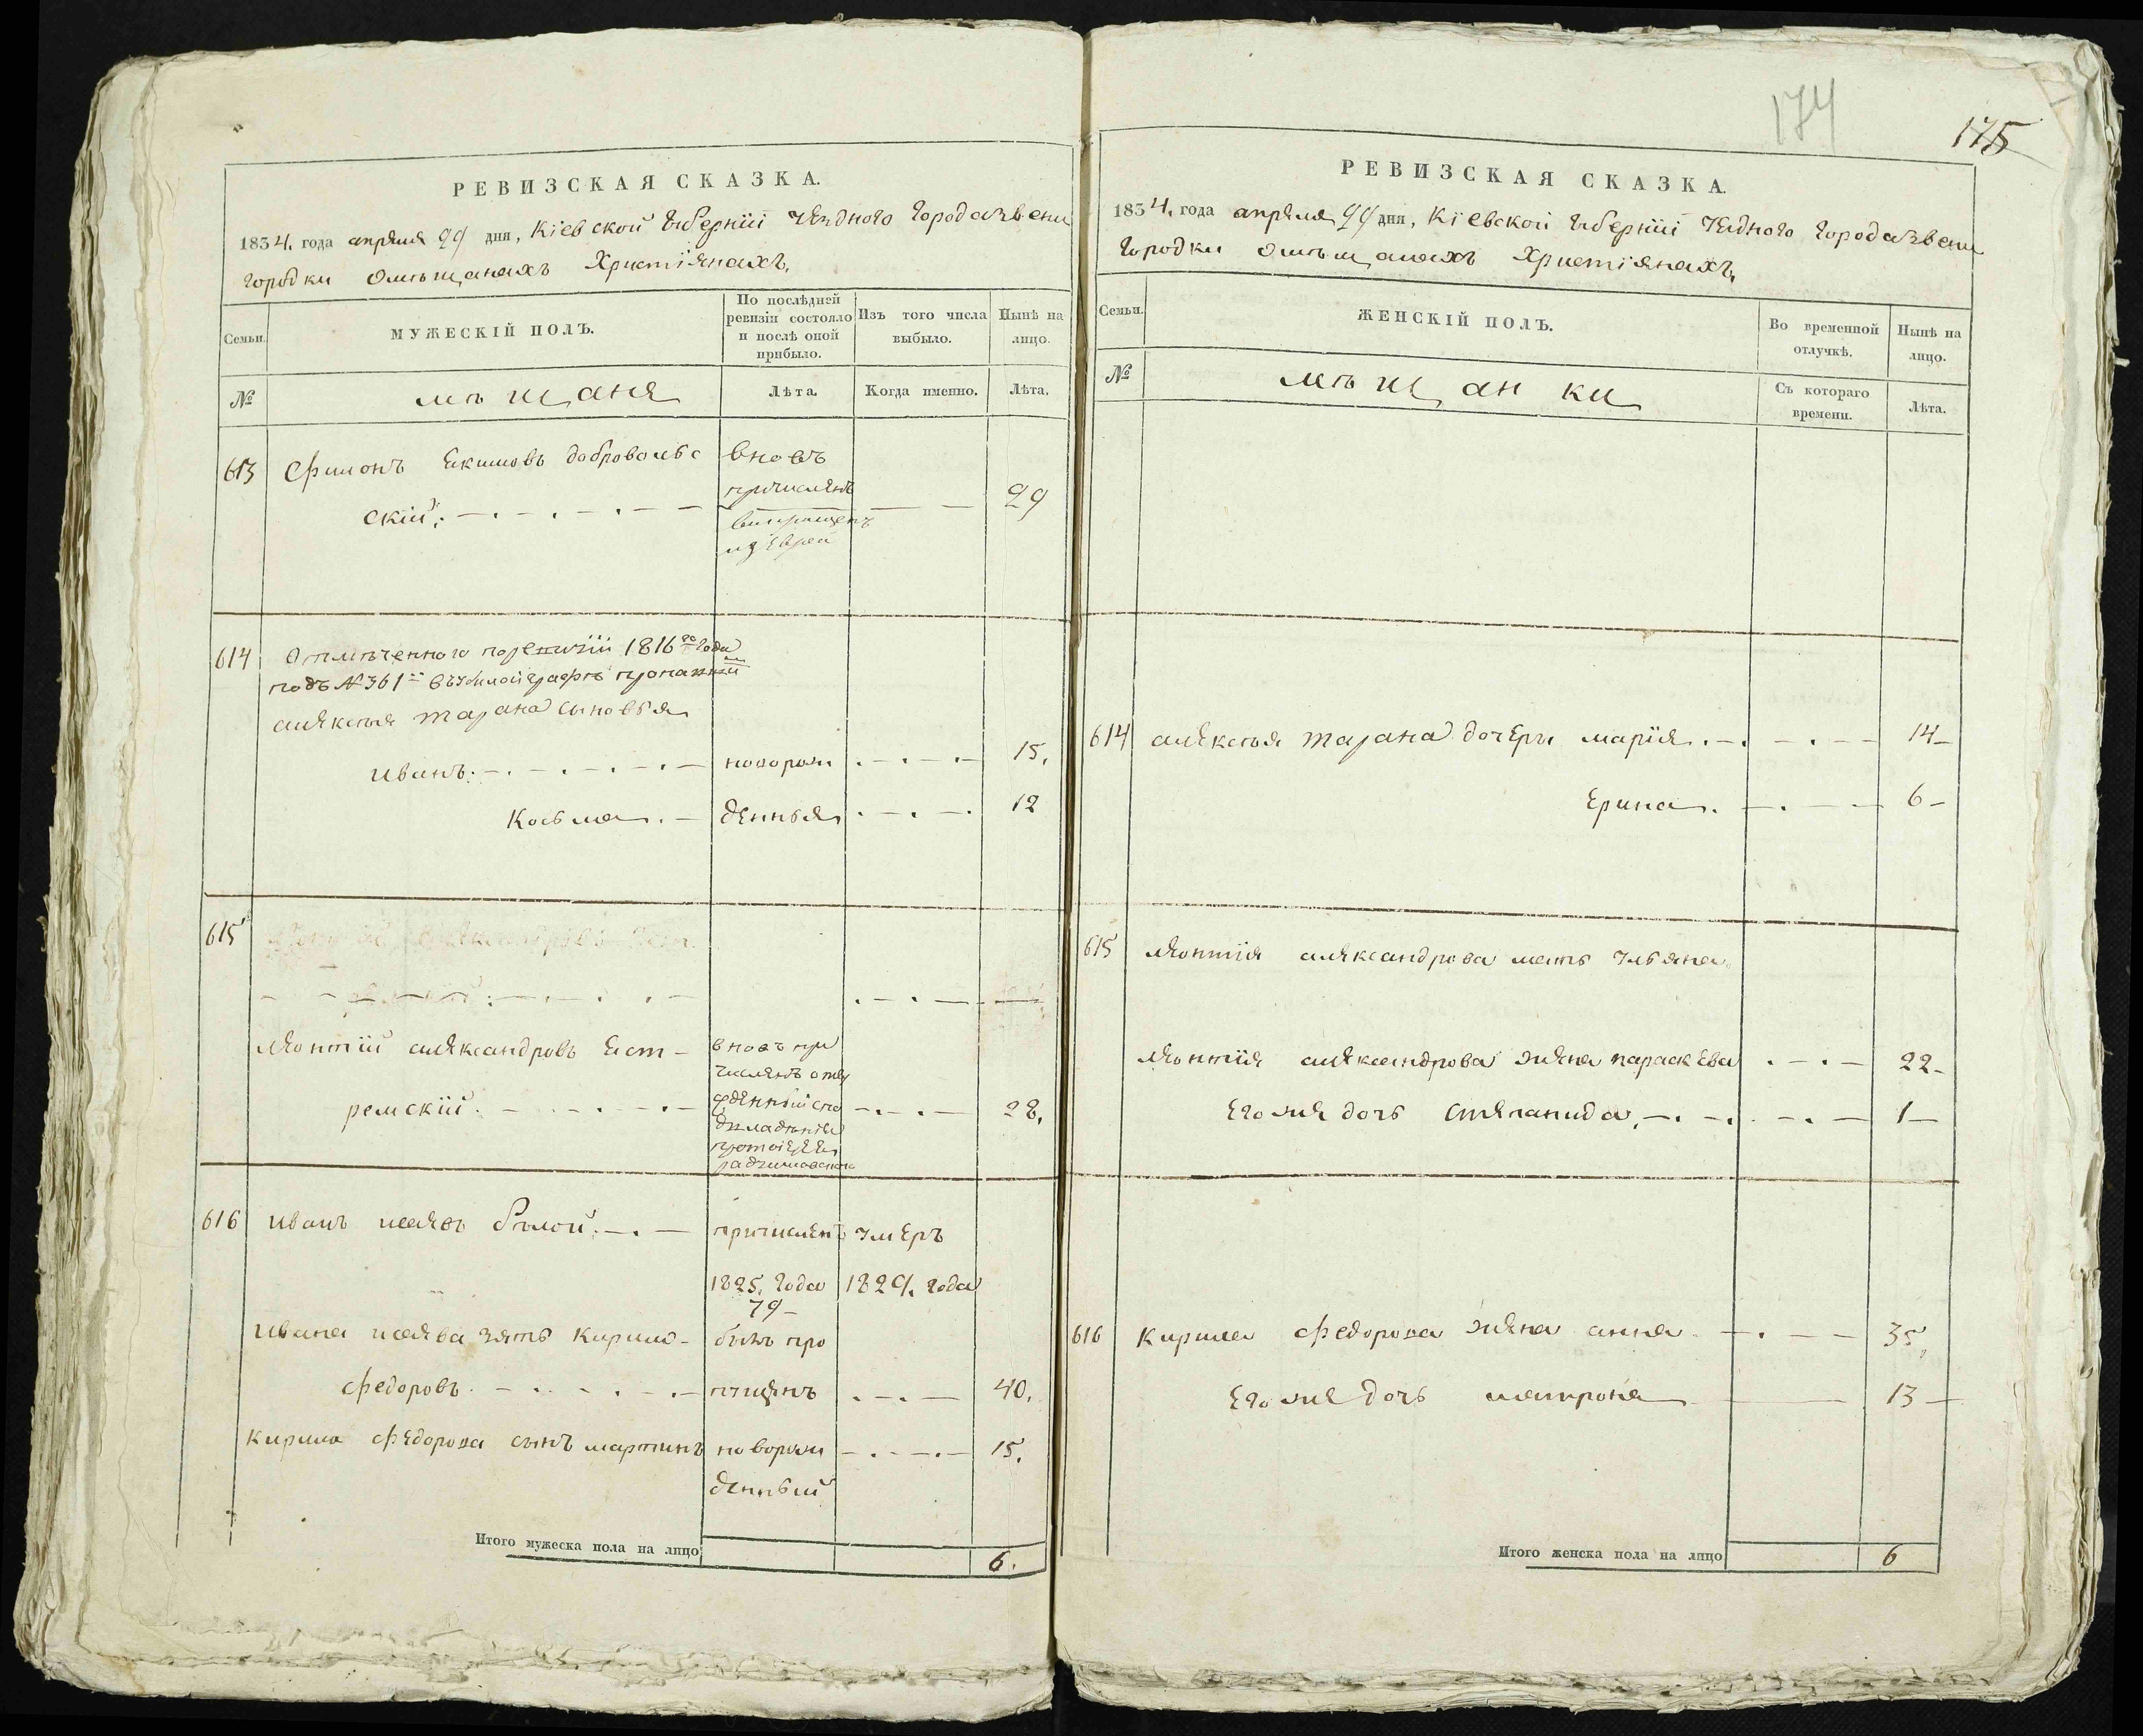 174
175
РЕВИЗСКАЯ СКАЗКА.
1834. года апреля 29 дня, Кіевской Губерніи Уездного Города Звени
Городки Омѣщанахъ Христіянахъ,
Семьи.
МУЖЕСКІЙ ПОЛЪ.
По послѣдней ревизіи состояло и послѣ оной прибыло.
Изъ того числа выбыло.
Нынѣ на лицо.
№
мѣщаня
Лѣта.
Когда именно.
Лѣта.
613 Филонъ Екимовъ доброволь вновъ
причислѣнъ
скій: 29
из Еврей
614 Отмѣченного поревизіи 1816го Года
подъ № 361 въ
алексѣя тарана сыновья
Иванъ новорож 15.
Козьма денныя 12
615
Леонтій александровъ Яст- вновъ при
числѣнъ
ремскій 28.
616 Иванъ исаевъ бѣлой причислѣнъ умеръ
1825. Года 1829. года
79
Ивана исаева зять Кирило- былъ про
Федоровъ пущенъ 40.
Кирила Федорова сынъ мартинъ новорож 15.
денный
Итого мужеска пола на лицо 6.
РЕВИЗСКАЯ СКАЗКА.
1834. года апреля 29 дня, Кіевской Губерніи Уездного Города Звени
Городки Омѣщанахъ Христіянахъ,
Семьи.
ЖЕНСКІЙ ПОЛЪ.
Во временной отлучкѣ.
Нынѣ на лицо.
№
мѣщанки
Съ котораго времени.
Лѣта.
614 алексѣя тарана дочери марія 14
Ерина 6
615 Леонтія александрова мать Ульяна
Леонтія александрова жена параскева 22
Его же дочь степанида 1
616 Кирила Федорова жена анна 35,
Его же дочь матрона 13
Итого женска пола на лицо 6